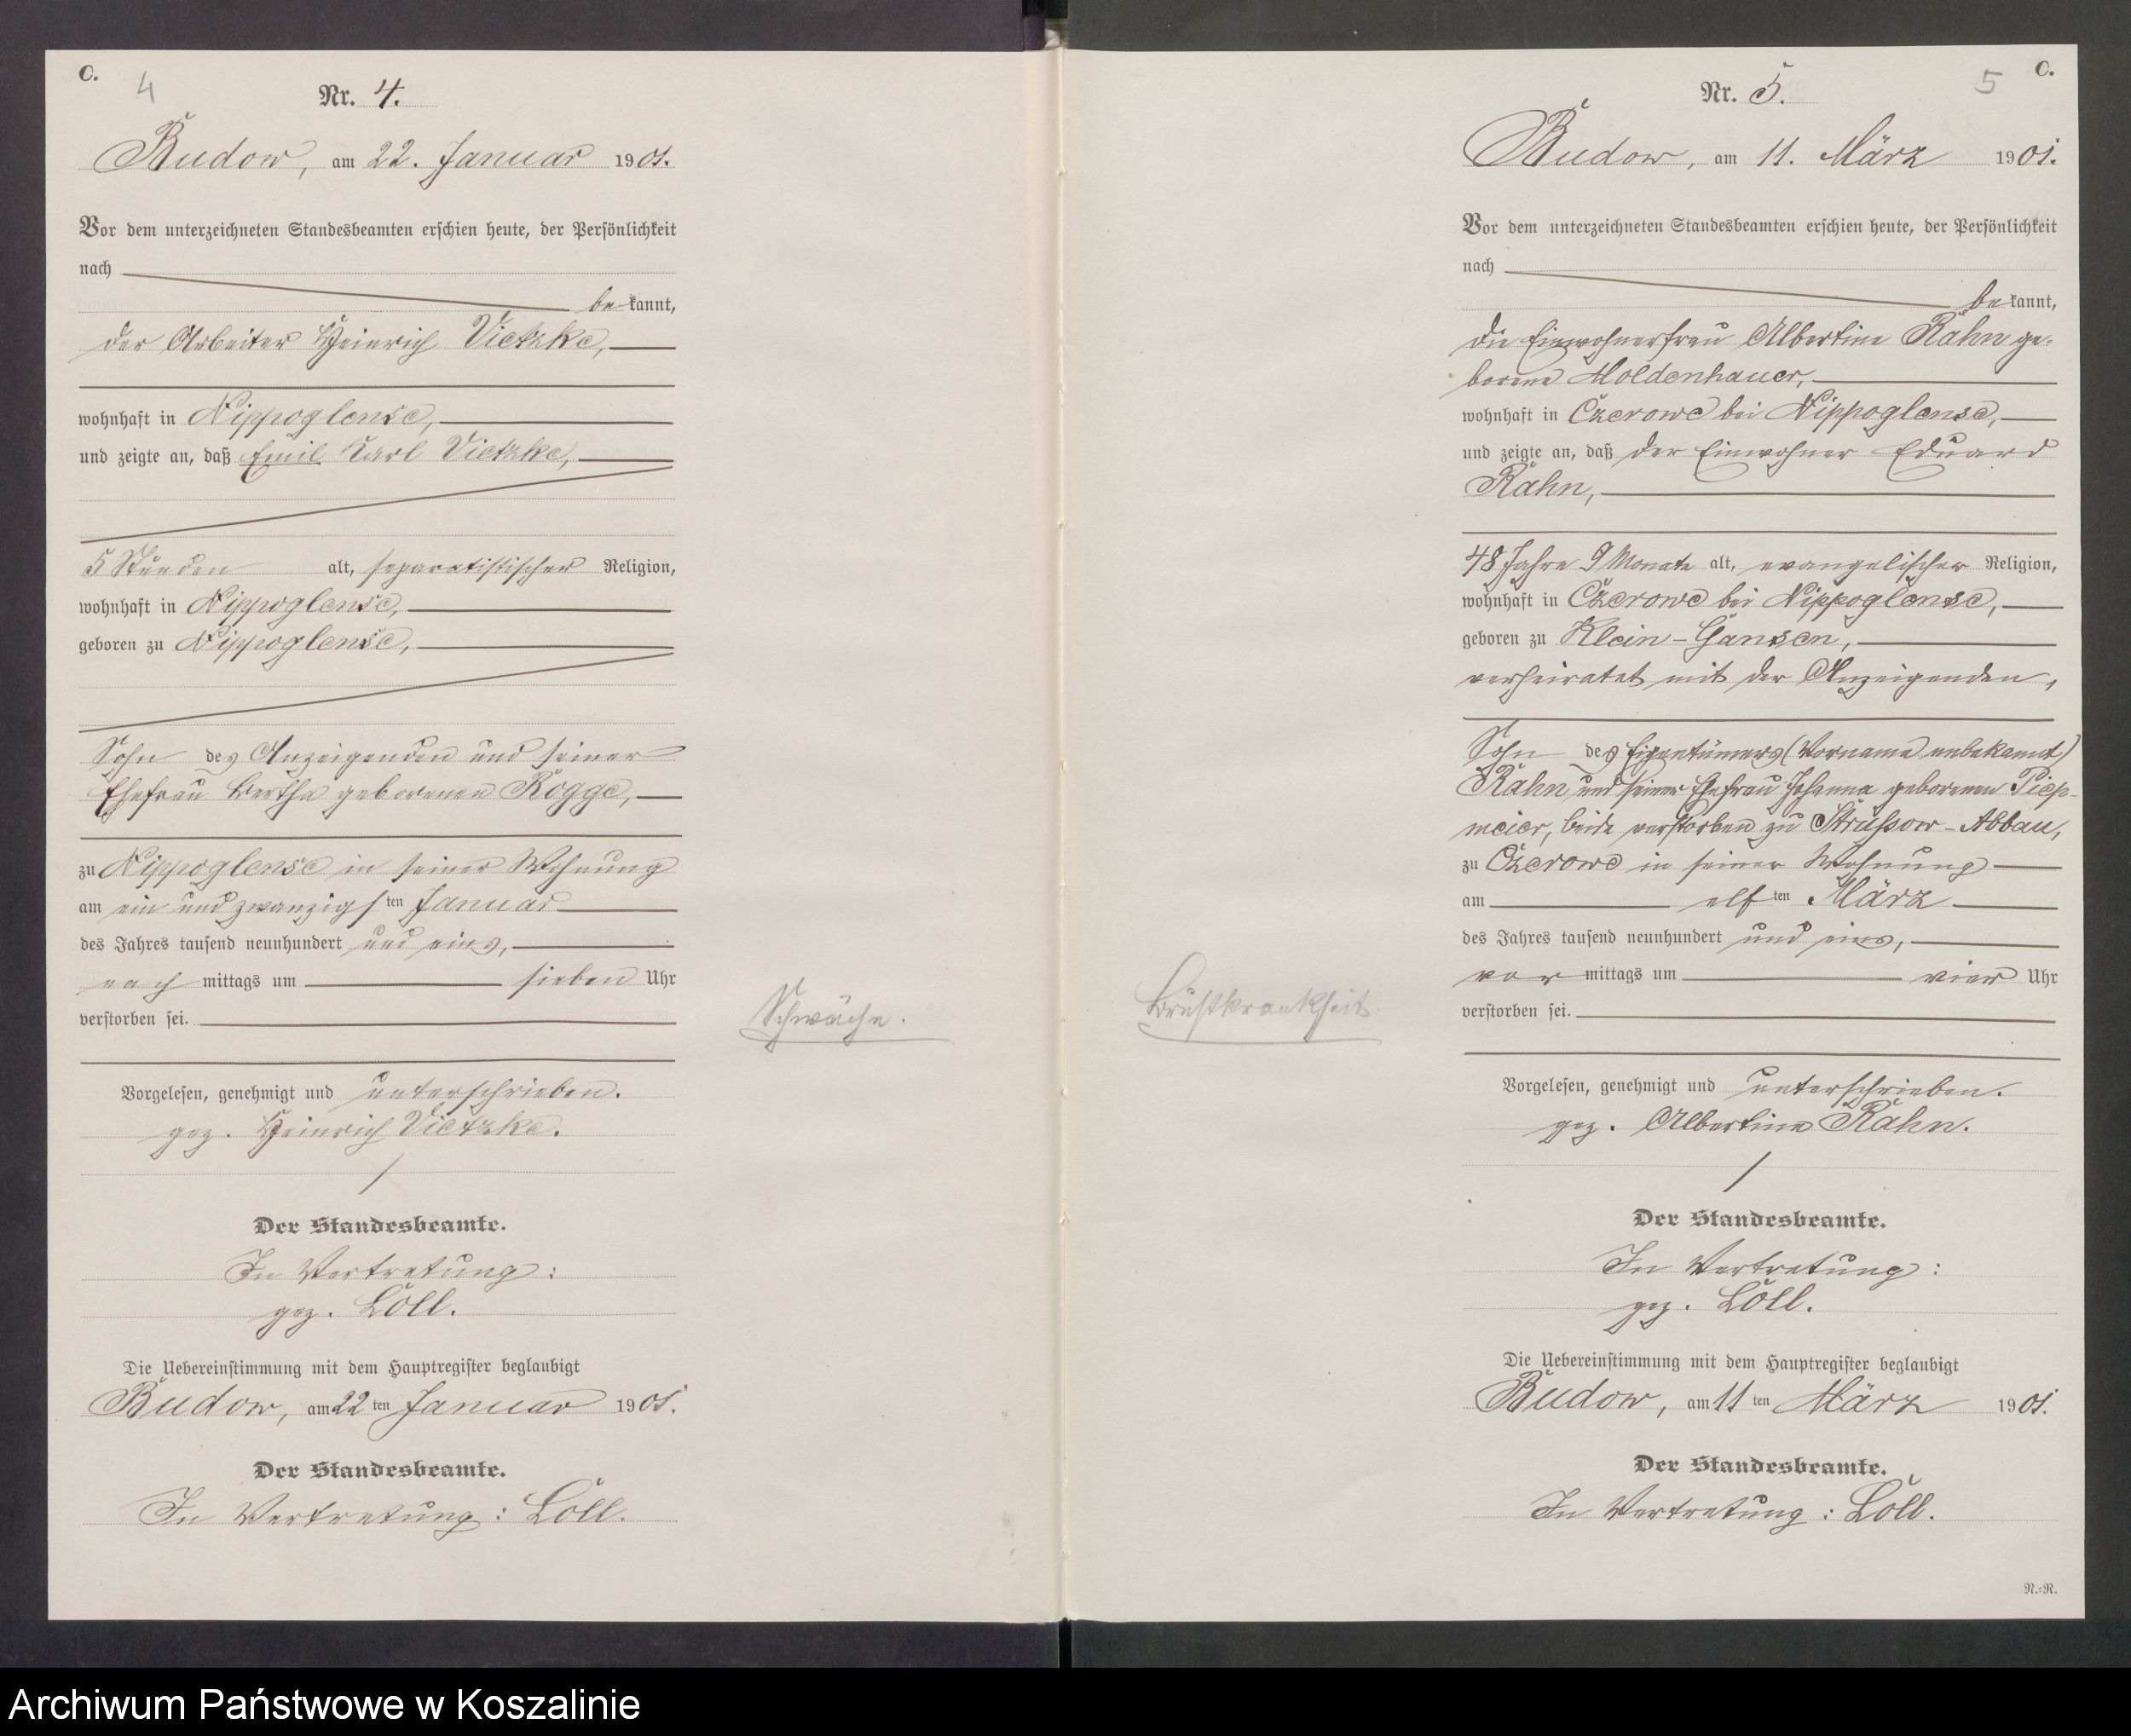 C.
4
Nr. 4.
Budow, am 22. Januar 1901.
Vor dem unterzeichneten Standesbeamten erschien heute, der Persönlichkeit
nach
be kannt,
der Arbeiter Heinrich Vietzke,
wohnhaft in Nippoglense,
und zeigte an, daß Emil Karl Vietzke,
5 Stunden alt, separatistischer Religion,
wohnhaft in Nippoglense,
geboren zu Nippoglense,
Sohn des Anzeigenden und seiner
Ehefrau Bertha geborenen Rogge,
zu Nippoglense in seiner Wohnung
am ein und zwanzigsten Januar
des Jahres tausend neunhundert und eins,
nach mittags um sieben Uhr
verstorben sei.
Schwäche.
Vorgelesen, genehmigt und unterschrieben.
gez. Heinrich Vietzke.
Der Standesbeamte.
In Vertretung:
gez. Löll.
Die Uebereinstimmung mit dem Hauptregister beglaubigt
Budow, am 22 ten Januar 1901.
Der Standesbeamte.
In Vertretung: Löll.
C.
5
Nr. 5.
Budow, am 11. März 1901.
Vor dem unterzeichneten Standesbeamten erschien heute, der Persönlichkeit
nach
be kannt,
die Einwohnerfrau Albertine Rahn ge-
borene Moldenhauer,
wohnhaft in Czerowe bei Nippoglense,
und zeigte an, daß der Einwohner Eduard
Rahn,
48 Jahre 9 Monate alt, evangelischer Religion,
wohnhaft in Czerowe bei Nippoglense,
geboren zu Klein-Gansen,
verheiratet mit der Anzeigenden,
Sohn des Eigentümers (Vorname unbekannt)
Rahn und seiner Ehefrau Johanna geborenen Piep-
meier, beide verstorben zu Strussow-Abbau,
zu Czerowe in seiner Wohnung
am elf ten März
des Jahres tausend neunhundert und eins,
vor mittags um vier Uhr
verstorben sei.
Brustkrankheit.
Vorgelesen, genehmigt und unterschrieben.
gez. Albertine Rahn.
Der Standesbeamte.
In Vertretung:
gez. Löll.
Die Uebereinstimmung mit dem Hauptregister beglaubigt
Budow, am 11 ten März 1901.
Der Standesbeamte.
In Vertretung: Löll.
N.-N.
Archiwum Państwowe w Koszalinie